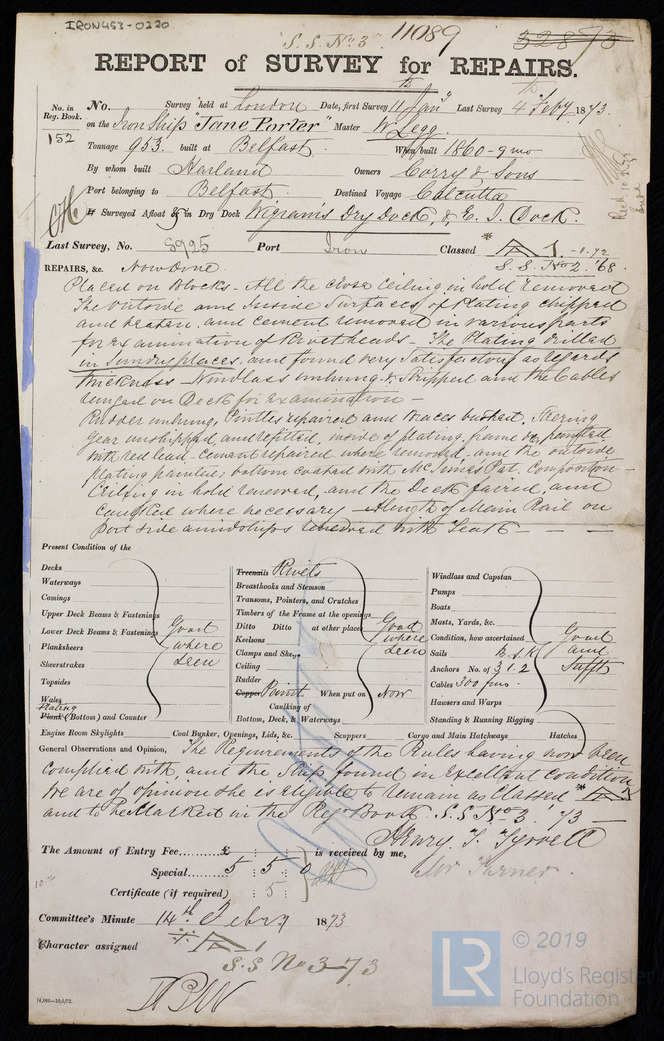 IRON453-0220
S.S. No 3
11089
REPORT of SURVEY for REPAIRS.
No. in Reg. Book. 152
No. Survey held at London Date, first Survey 11th Jany Last Survey 4th Feby 1873.
on the Iron Ship "Jane Porter" Master W Legg.
Tonnage 953. built at Belfast. When built 1860-9mo
By whom built Harland Owners Corry & Sons
Port belonging to Belfast. Destined Voyage Calcutta
If Surveyed Afloat or in Dry Dock Wigram's Dry Dock, & E. I. Dock.
Last Survey, No. 8925 Port Iron Classed A 1. -8.72
S.S. No 2. '68.
REPAIRS, &c. Now Done
Placed on Blocks - All the close Ceiling in hold removed
The outside and Inside Surfaces of Plating chipped
and beaten, and cement removed in various parts
for examination of Rivet heads - The Plating drilled
in Sundry places, and found very Satisfactory as regards
thickness - Windlass unhung & Stripped and the Cables
ranged on Deck for examination -
Rudder unhung, Pintles repaired and braces bushed, Steering
gear unshipped and refitted, inside of plating, frame &c, painted
with red lead - cement repaired where removed - and the outside
plating painted; bottom coated with McInnes Pat. Composition -
Ceiling in hold renewed, and the Deck faired, and
Caulked where necessary - A length of Main Rail on
Port side amidships renewed with Teak -
Present Condition of the
Decks
Waterways
Comings
Upper Deck Beams & Fastenings
Lower Deck Beams & Fastenings
Planksheers
Sheerstrakes
Topsides
Wales
Plating
Plank (Bottom) and Counter
Good where seen
Treenails Rivets
Breasthooks and Stemson
Transoms, Pointers, and Crutches
Timbers of the Frame at the openings
Ditto Ditto at other places
Keelsons
Clamps and Shelves
Ceiling
Rudder
Copper Paint When put on Now
Caulking of
Bottom, Deck, & Waterways
Good where seen
Windlass and Capstan
Pumps
Boats
Masts, Yards, &c.
Condition, how ascertained
Sails
Anchors No. of 3.1.2
Cables 300 fms.
Hawsers and Warps
Standing & Running Rigging
Good and Sufft
Engine Room Skylights Coal Bunker, Openings, Lids, &c. Scuppers Cargo and Main Hatchways Hatches
General Observations and Opinion, The Requirements of the Rules having now been
complied with, and the Ship found in Excellent Condition
We are of opinion she is eligible to remain as Classed A 1
and to be Marked in the Reg. Book. S.S No 3. '73 -
Henry T. Tyrrell
Mr Turner.
The Amount of Entry Fee.........£ : : is received by me,
Special ...... 5 : 5 : 0
Certificate (if required) : 5 :
Committee's Minute 14th Febry 1873
Character assigned A 1
S.S No 3-73
© 2019
LR
Lloyd's Register
Foundation